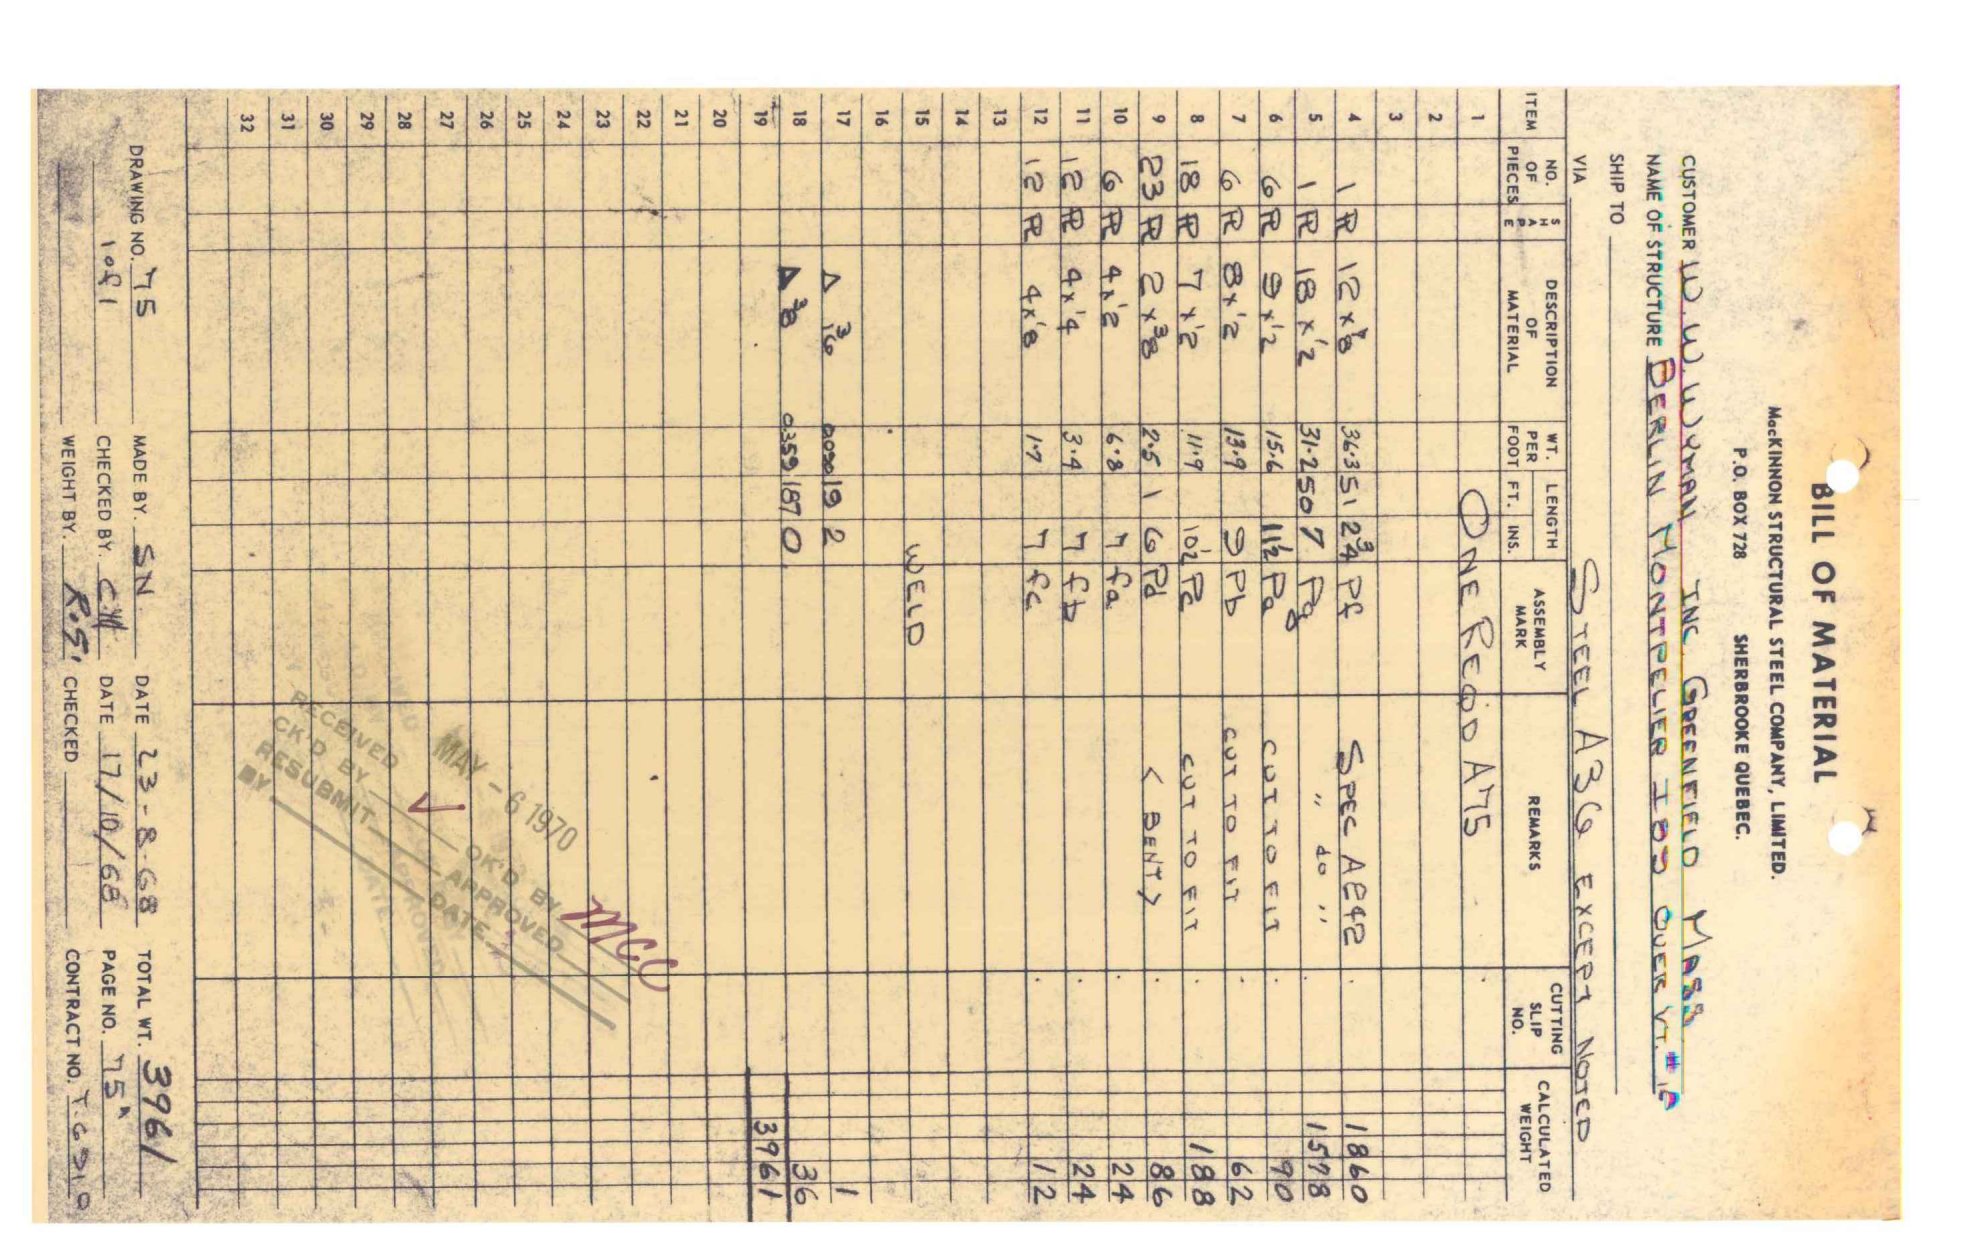 BILL OF MATERIAL
MacKINNON STRUCTURAL STEEL COMPANY, LIMITED.
P.O. BOX 728 SHERBROOKE QUEBEC.
CUSTOMER W.W. WYMAN INC. GREENFIELD MASS
NAME OF STRUCTURE BERLIN MONTPELIER I89 OVER VT. #12
SHIP TO
VIA STEEL A36 EXCEPT NOTED
ITEM NO. OF PIECES SHAPE DESCRIPTION OF MATERIAL WT. PER FOOT LENGTH FT. INS. ASSEMBLY MARK REMARKS CUTTING SLIP NO. CALCULATED WEIGHT
1 ONE REQ'D A75
2
3
4 1 PL 12 x 7/8 36.3 51 2 3/4 Pf SPEC A242 1860
5 1 PL 18 x 1/2 31.2 50 7 Pg " do " 1578
6 6 PL 9 x 1/2 15.6 11 1/2 Pa CUT TO FIT 90
7 6 PL 8 x 1/2 13.9 9 Pb CUT TO FIT 62
8 18 PL 7 x 1/2 11.9 10 1/2 Pc CUT TO FIT 188
9 23 PL 2 x 3/8 2.5 1 6 Pd < BENT > 86
10 6 PL 4 x 1/2 6.8 7 fa 24
11 12 PL 4 x 1/4 3.4 7 fb 24
12 12 PL 4 x 1/8 1.7 7 fc 12
13
14
15 WELD
16
17 Δ 3/16 0.090 19 2 1
18 Δ 3/8 0.359 187 0 36
19 3961
20
21
22
23
24
25
26
27
28
29
30
31
32
MAY - 6 1970
RECEIVED
CK'D BY OK'D BY MCC
RESUBMIT APPROVED
BY DATE
DRAWING NO. 75 MADE BY. SN DATE 23-8-68 TOTAL WT. 3961
1 of 1 CHECKED BY. CH DATE 17/10/68 PAGE NO. 75A
WEIGHT BY. R.S. CHECKED CONTRACT NO. T-6910